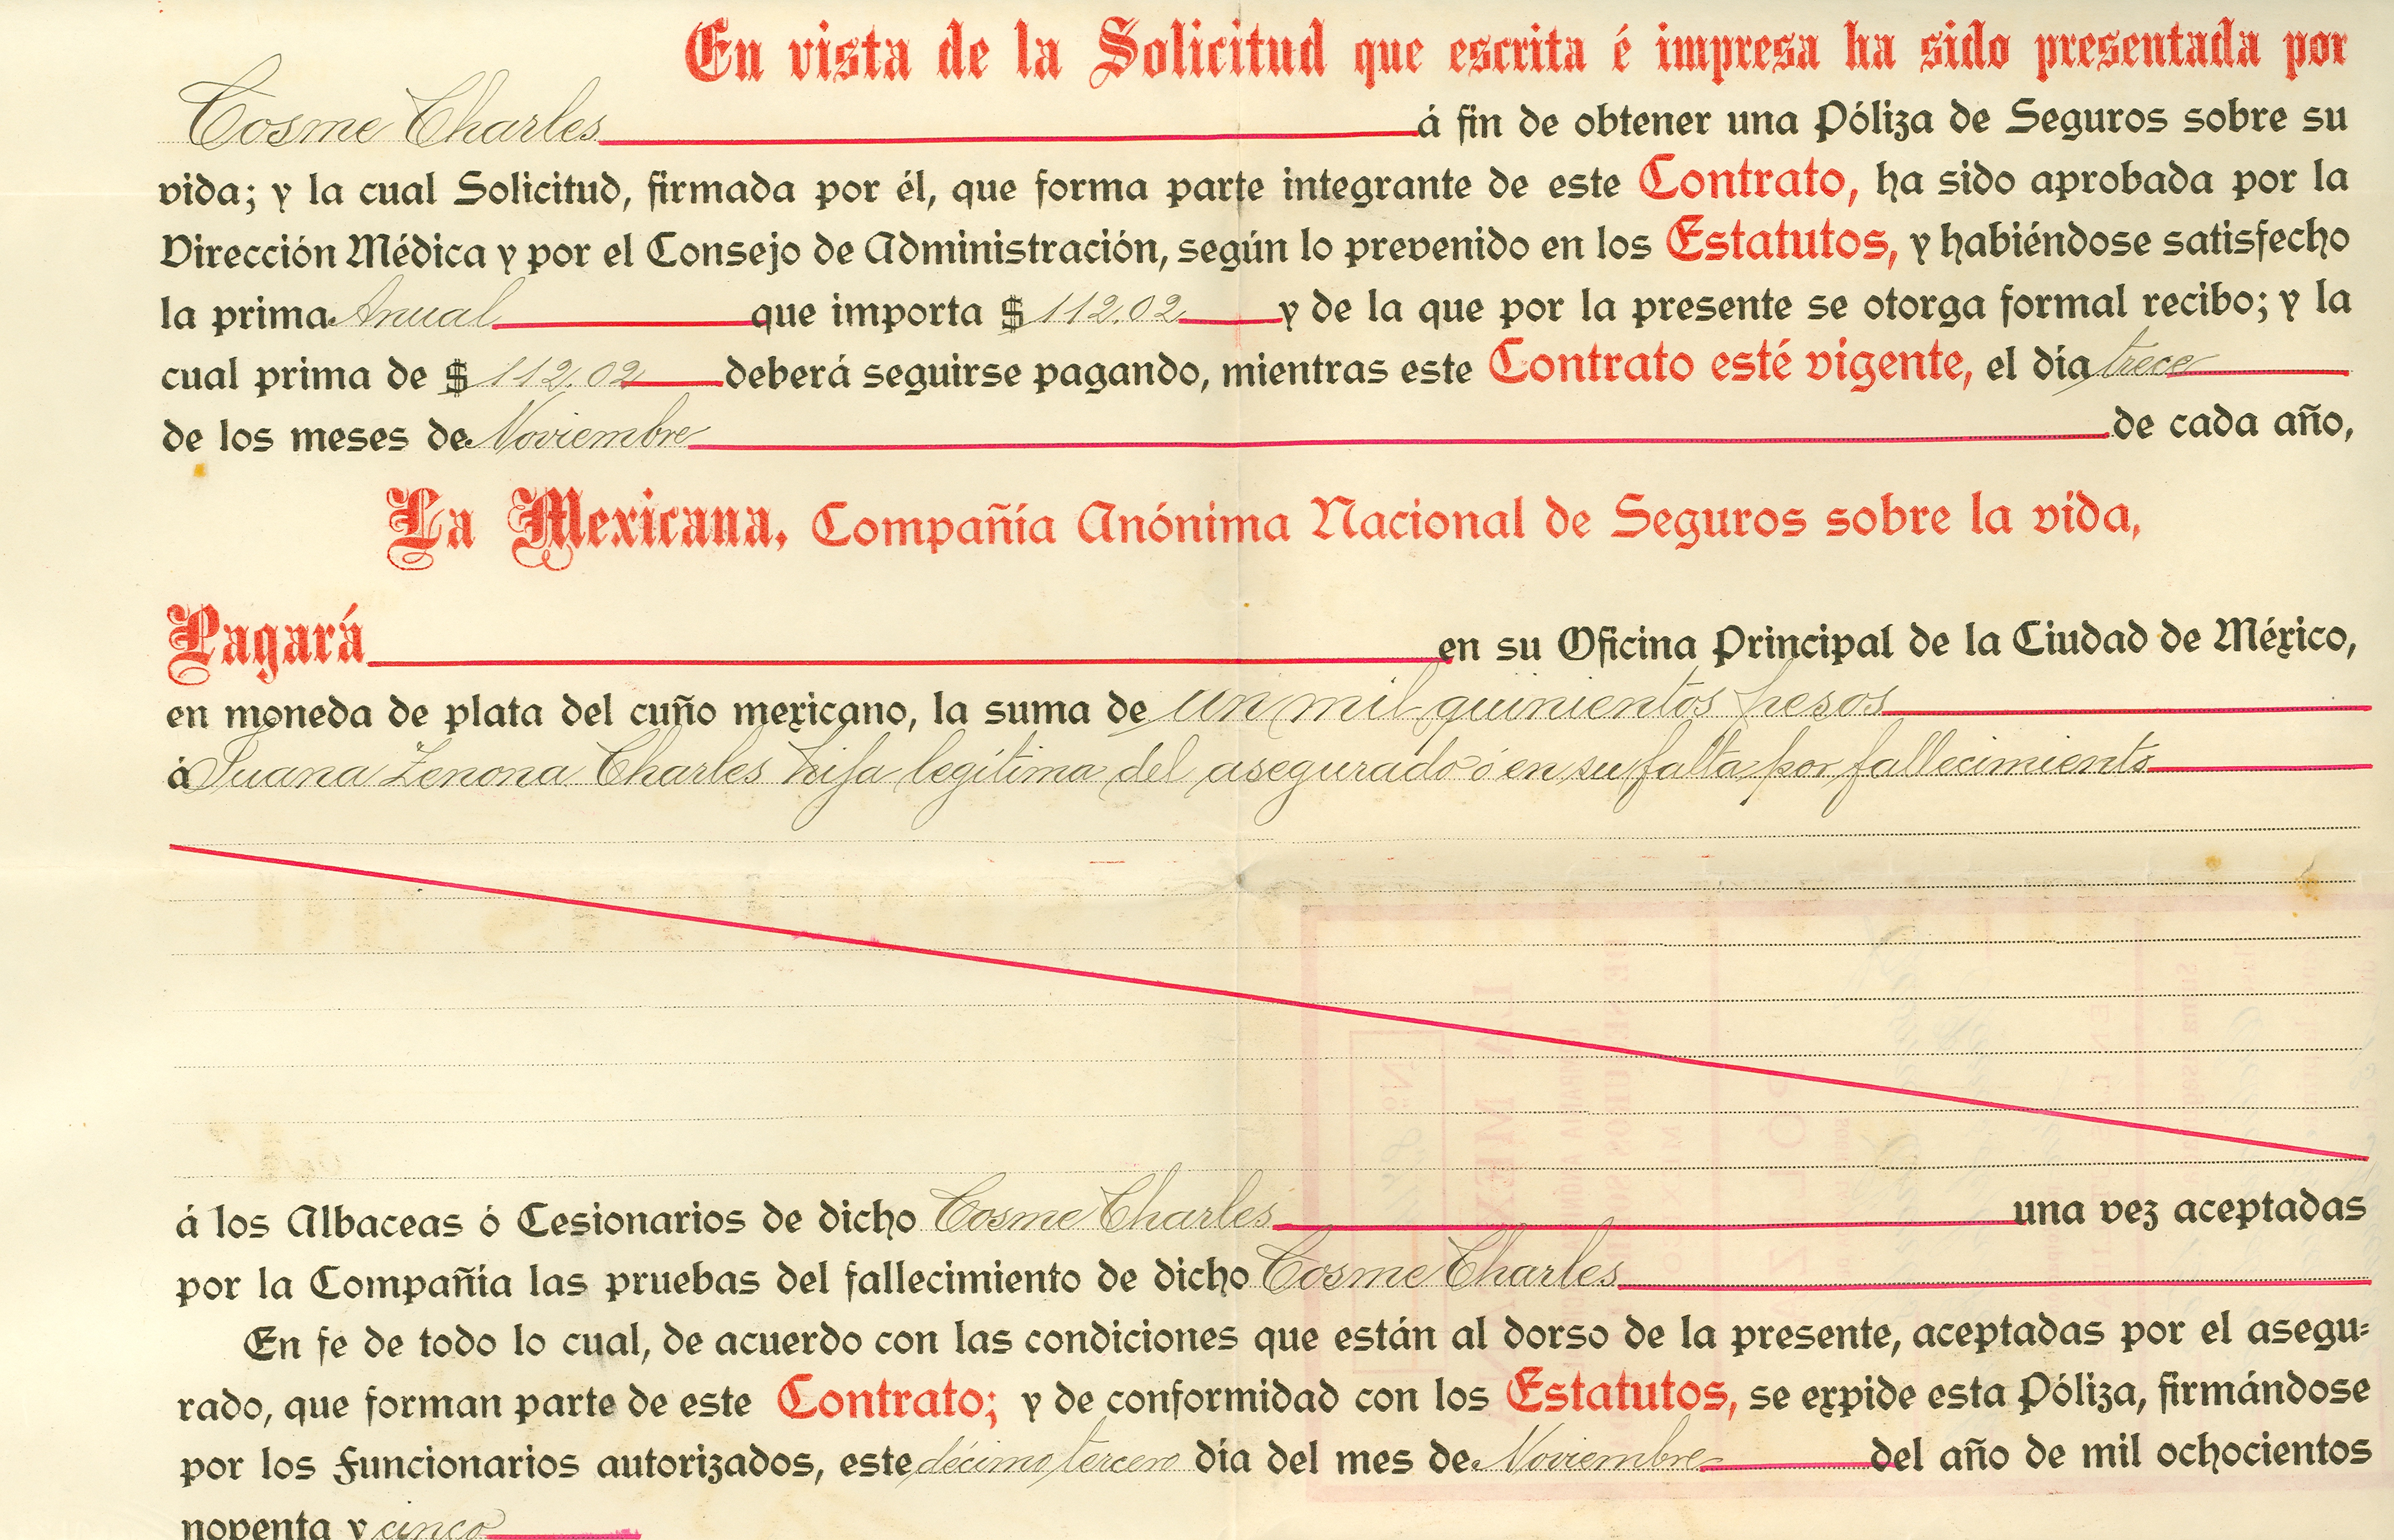 En vista de la Solicitud que escrita é impresa ha sido presentada por
Cosme Charles á fin de obtener una Póliza de Seguros sobre su
vida; y la cual Solicitud, firmada por él, que forma parte integrante de este Contrato, ha sido aprobada por la
Dirección Médica y por el Consejo de Administración, según lo prevenido en los Estatutos, y habiéndose satisfecho
la prima Anual que importa $ 112.02 y de la que por la presente se otorga formal recibo; y la
cual prima de $ 112.02 deberá seguirse pagando, mientras este Contrato esté vigente, el día trece
de los meses de Noviembre de cada año,
La Mexicana, Compañía Anónima Nacional de Seguros sobre la vida,
Pagará en su Oficina Principal de la Ciudad de México,
en moneda de plata del cuño mexicano, la suma de un mil quinientos pesos
á Juana Zenona Charles hija legítima del asegurado ó en su falta por fallecimiento
á los Albaceas ó Cesionarios de dicho Cosme Charles una vez aceptadas
por la Compañía las pruebas del fallecimiento de dicho Cosme Charles
En fe de todo lo cual, de acuerdo con las condiciones que están al dorso de la presente, aceptadas por el asegu-
rado, que forman parte de este Contrato; y de conformidad con los Estatutos, se expide esta Póliza, firmándose
por los Funcionarios autorizados, este décimo tercero día del mes de Noviembre del año de mil ochocientos
noventa y cinco